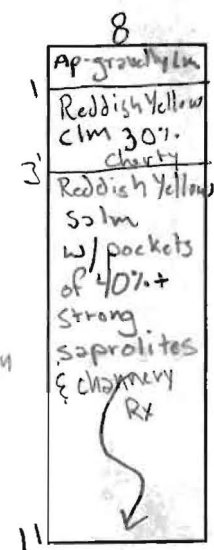 8
Ap-gravelly Lm
1
Reddish Yellow
clm 30%
cherty
3'
Reddish Yellow
salm
w/ pockets
of 40%+
strong
saprolites
& channery
Rx
11